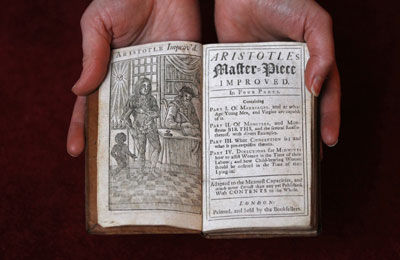 ARISTOTLE Improv'd.
ARISTOTLE's
Master-Piece
IMPROVED.
In FOUR PARTS.
Containing
PART I. Of MARRIAGES, and at what
Age Young Men, and Virgins are capable
of it.
PART II. Of MONSTERS, and Mon-
strous BIRTHS, and the several
with divers Examples.
PART III. What CONCEPTION is; and
what is pre-requisite thereto.
PART IV. DIRECTIONS for MIDWIVES
how to assist Women in the Time of their
Labour; and how Child-bearing Women
should be ordered in the Time of their
Lying-in.
Adapted to the Meanest Capacities, and
much more Correct than any yet Published.
With CONTENTS to the Whole.
LONDON:
Printed, and Sold by the Booksellers.